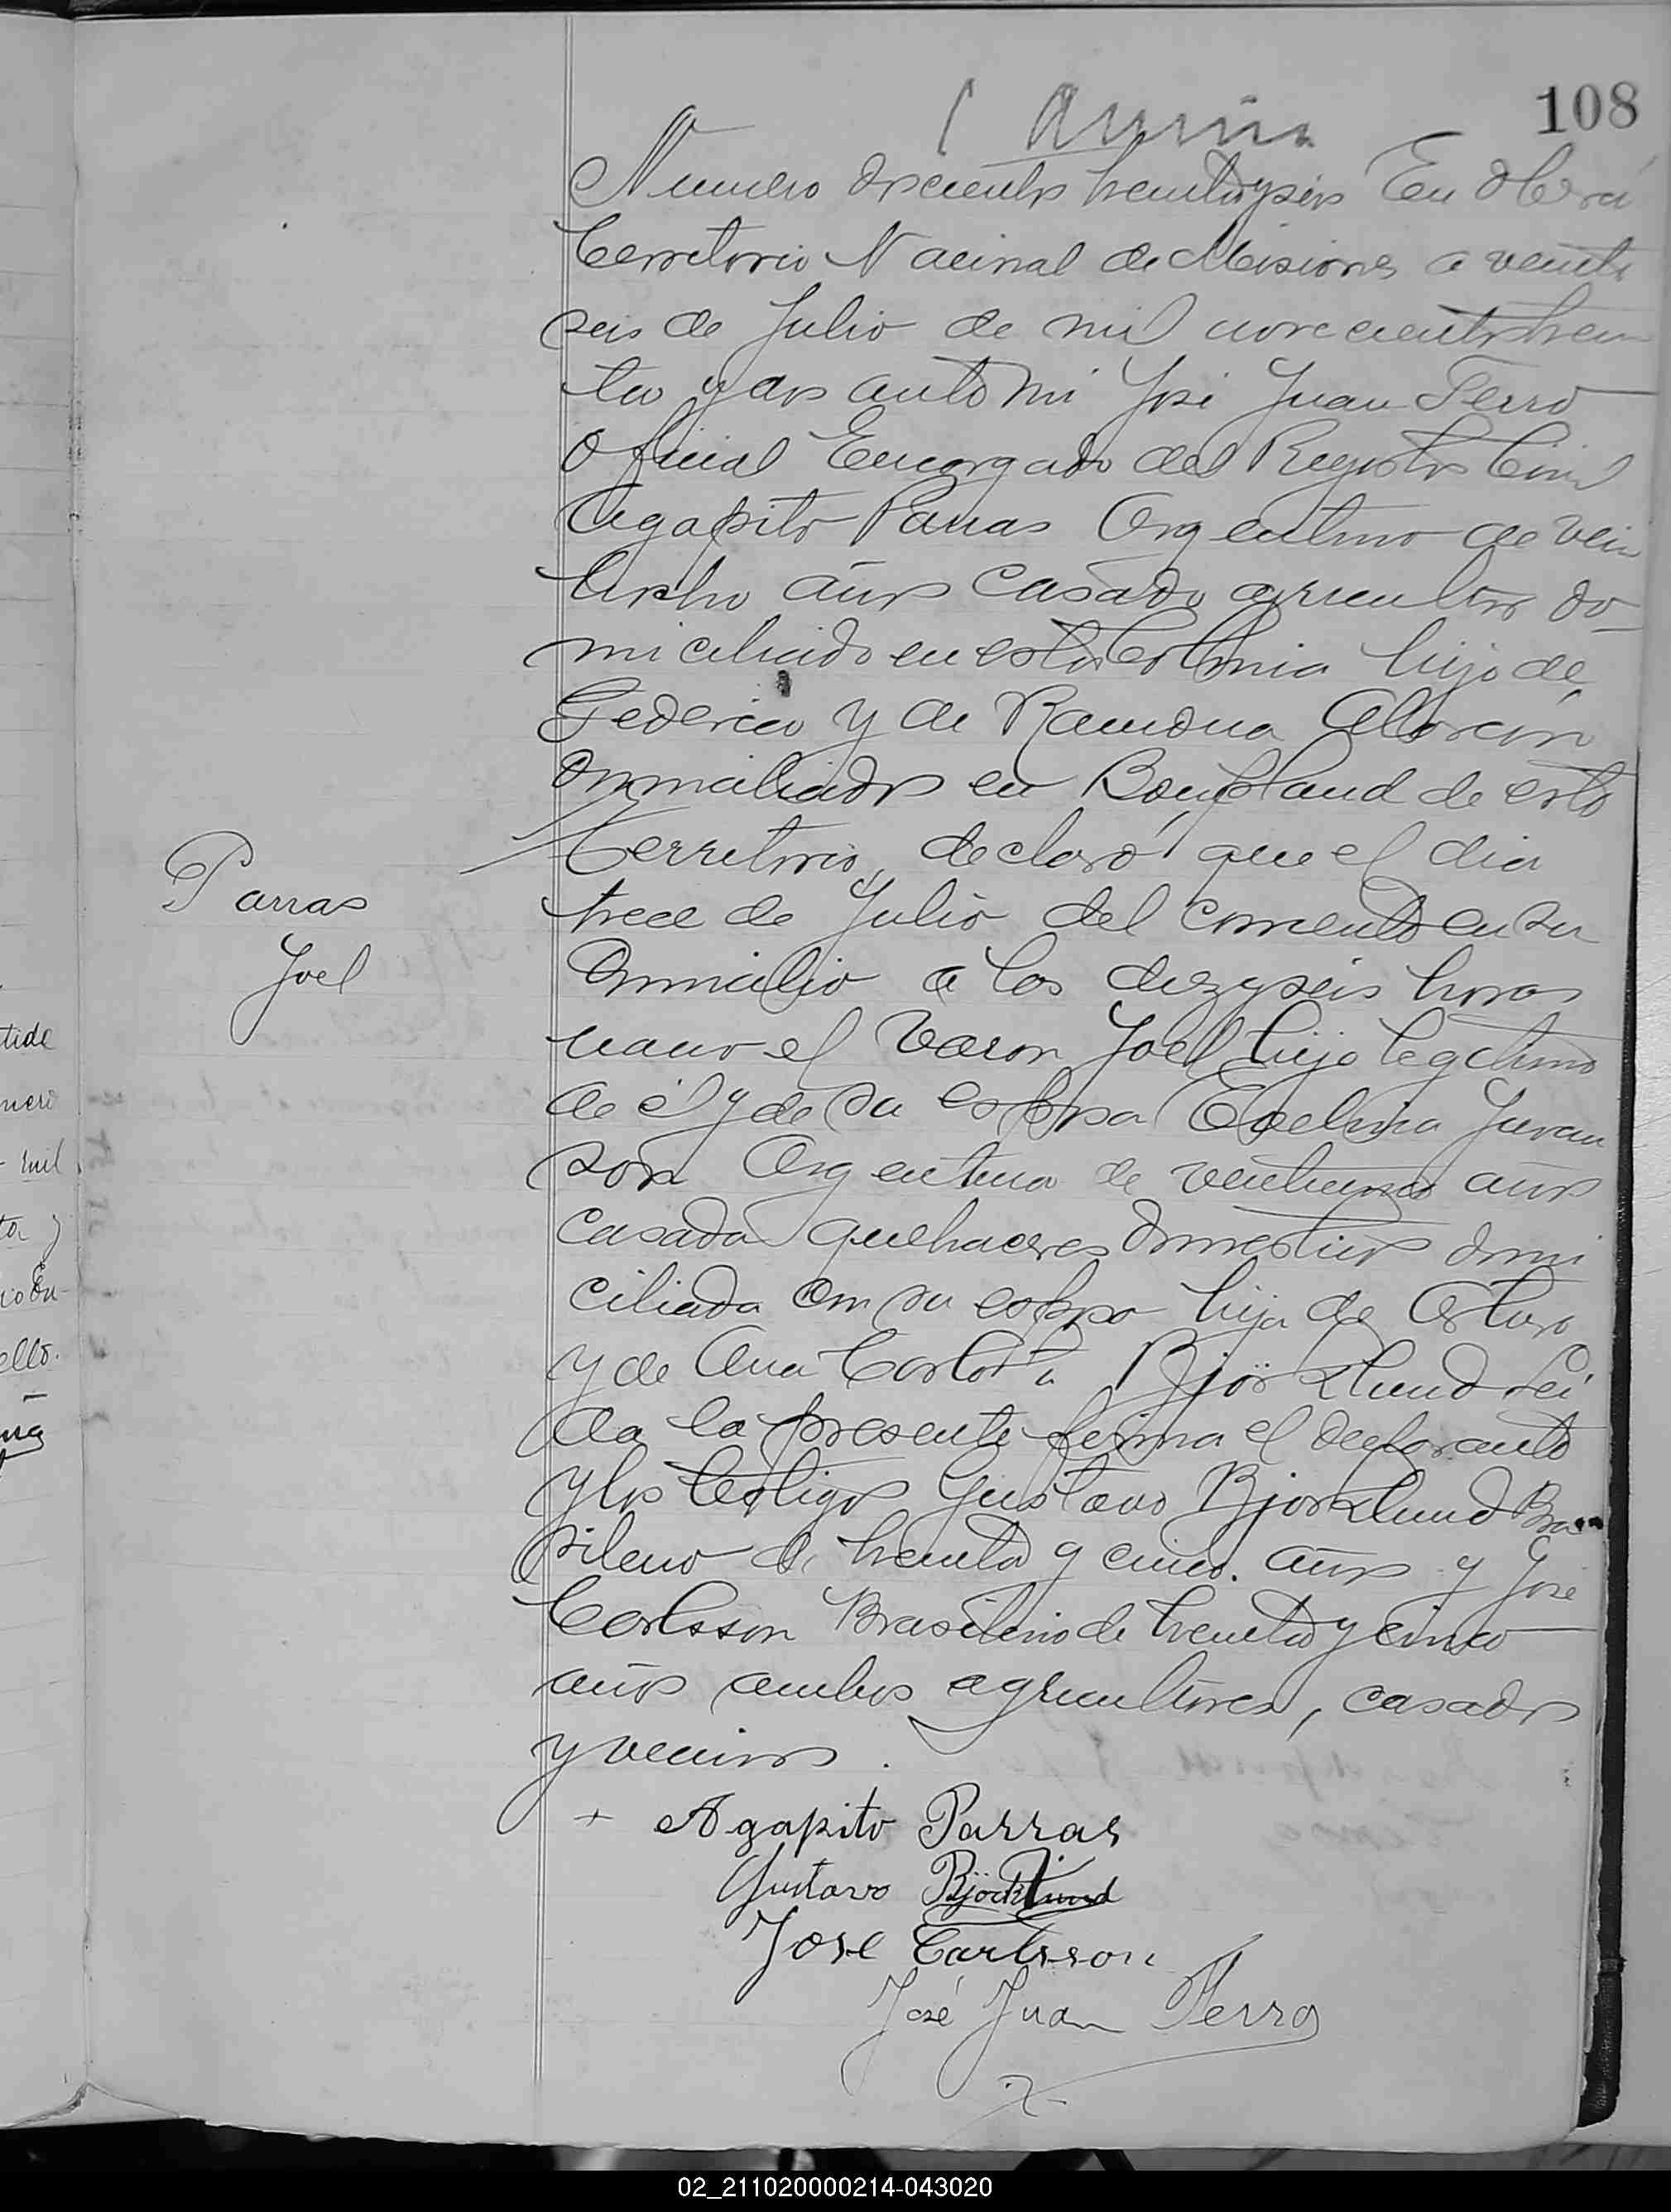 108
Numero doscientos treintayseis En Oberá
Territorio Nacional de Misiones a veinti
seis de Julio de mil novecientos trein
ta y dos ante mi José Juan Ferro
Oficial Encargado del Registro Civil
Agapito Parras Argentino de vein
tiocho años casado agricultor do-
miciliado en esta Colonia hijo de
Federico y de Ramona
domiciliados en Bonpland de este
Territorio, declaró que el dia
trece de Julio del corriente en su
domicilio a las diezyseis horas
nacio el varon Joel hijo legitimo
de él y de su esposa Evelina
Argentina de años
casada quehaceres domesticos domi
ciliada con su esposo hija de
y de Ana Carlota Björklund Lei
da la presente firma el declarante
y los testigos Gustavo Bjorklund Bra
sileno de treinta y cinco años y José
Carlsson Brasileno de treinta y cinco
años ambos agricultores, casados
y vecinos.
Parras
Joel
+ Agapito Parras
Gustavo Björklund
Jose Carlsson
José Juan Ferro
tide
mil
ta y
ello.
02_211020000214-043020